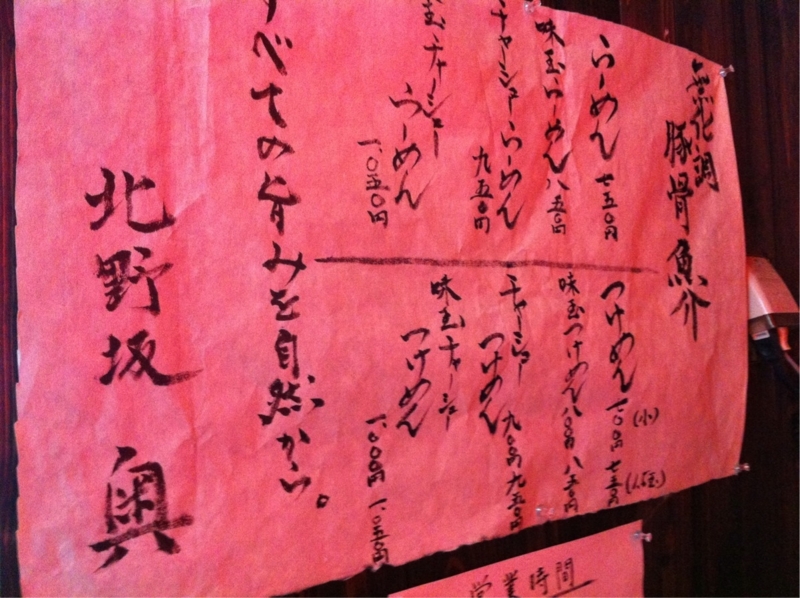 無化調
豚骨魚介
らーめん 七五〇円
味玉らーめん 八五〇円
チャーシューらーめん 九五〇円
玉チャーシュー
らーめん 一、〇五〇円
(小)
つけめん 七〇〇円 七五〇円
味玉つけめん 八〇〇円 八五〇円
チャーシュー
つけめん 九〇〇円 九五〇円
味玉チャーシュー
つけめん 一、〇〇〇円 一、〇五〇円
すべての旨みを自然から。
北野坂 奥
営業時間